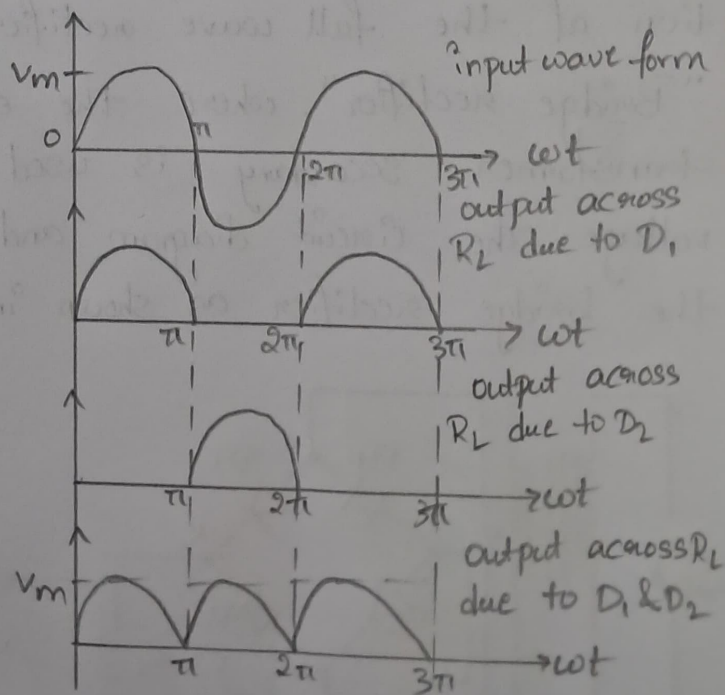 Vm
input wave form
0
π
2π
3π
ωt
output across
RL due to D1
π
2π
3π
ωt
output across
RL due to D2
π
2π
3π
ωt
output across RL
Vm
due to D1 & D2
π
2π
3π
ωt